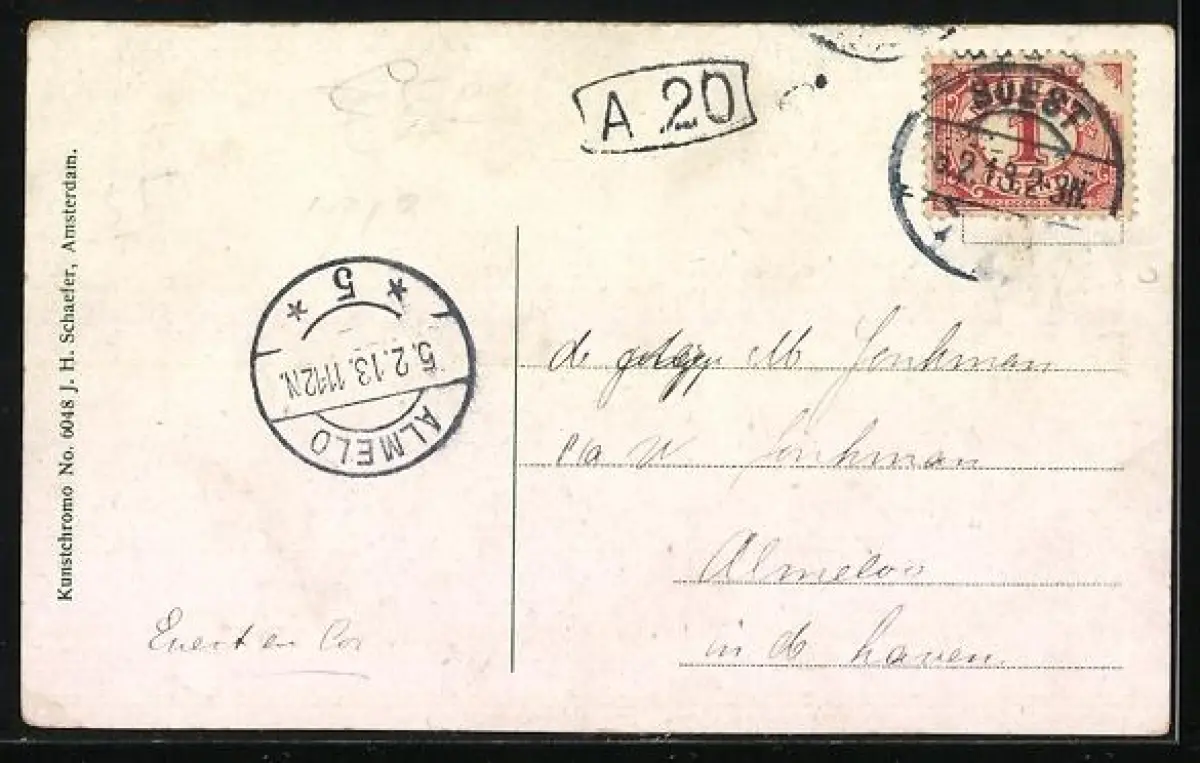 Kunstchromo No. 6048 J. H. Schaefer, Amsterdam.
A 20
SOEST
.2.13.2-3N.
1
5
5.2.13.11-12N.
ALMELO
de M Jonkman
c/a W Jonkman
Almeloo
in de haven
Evert en Cor